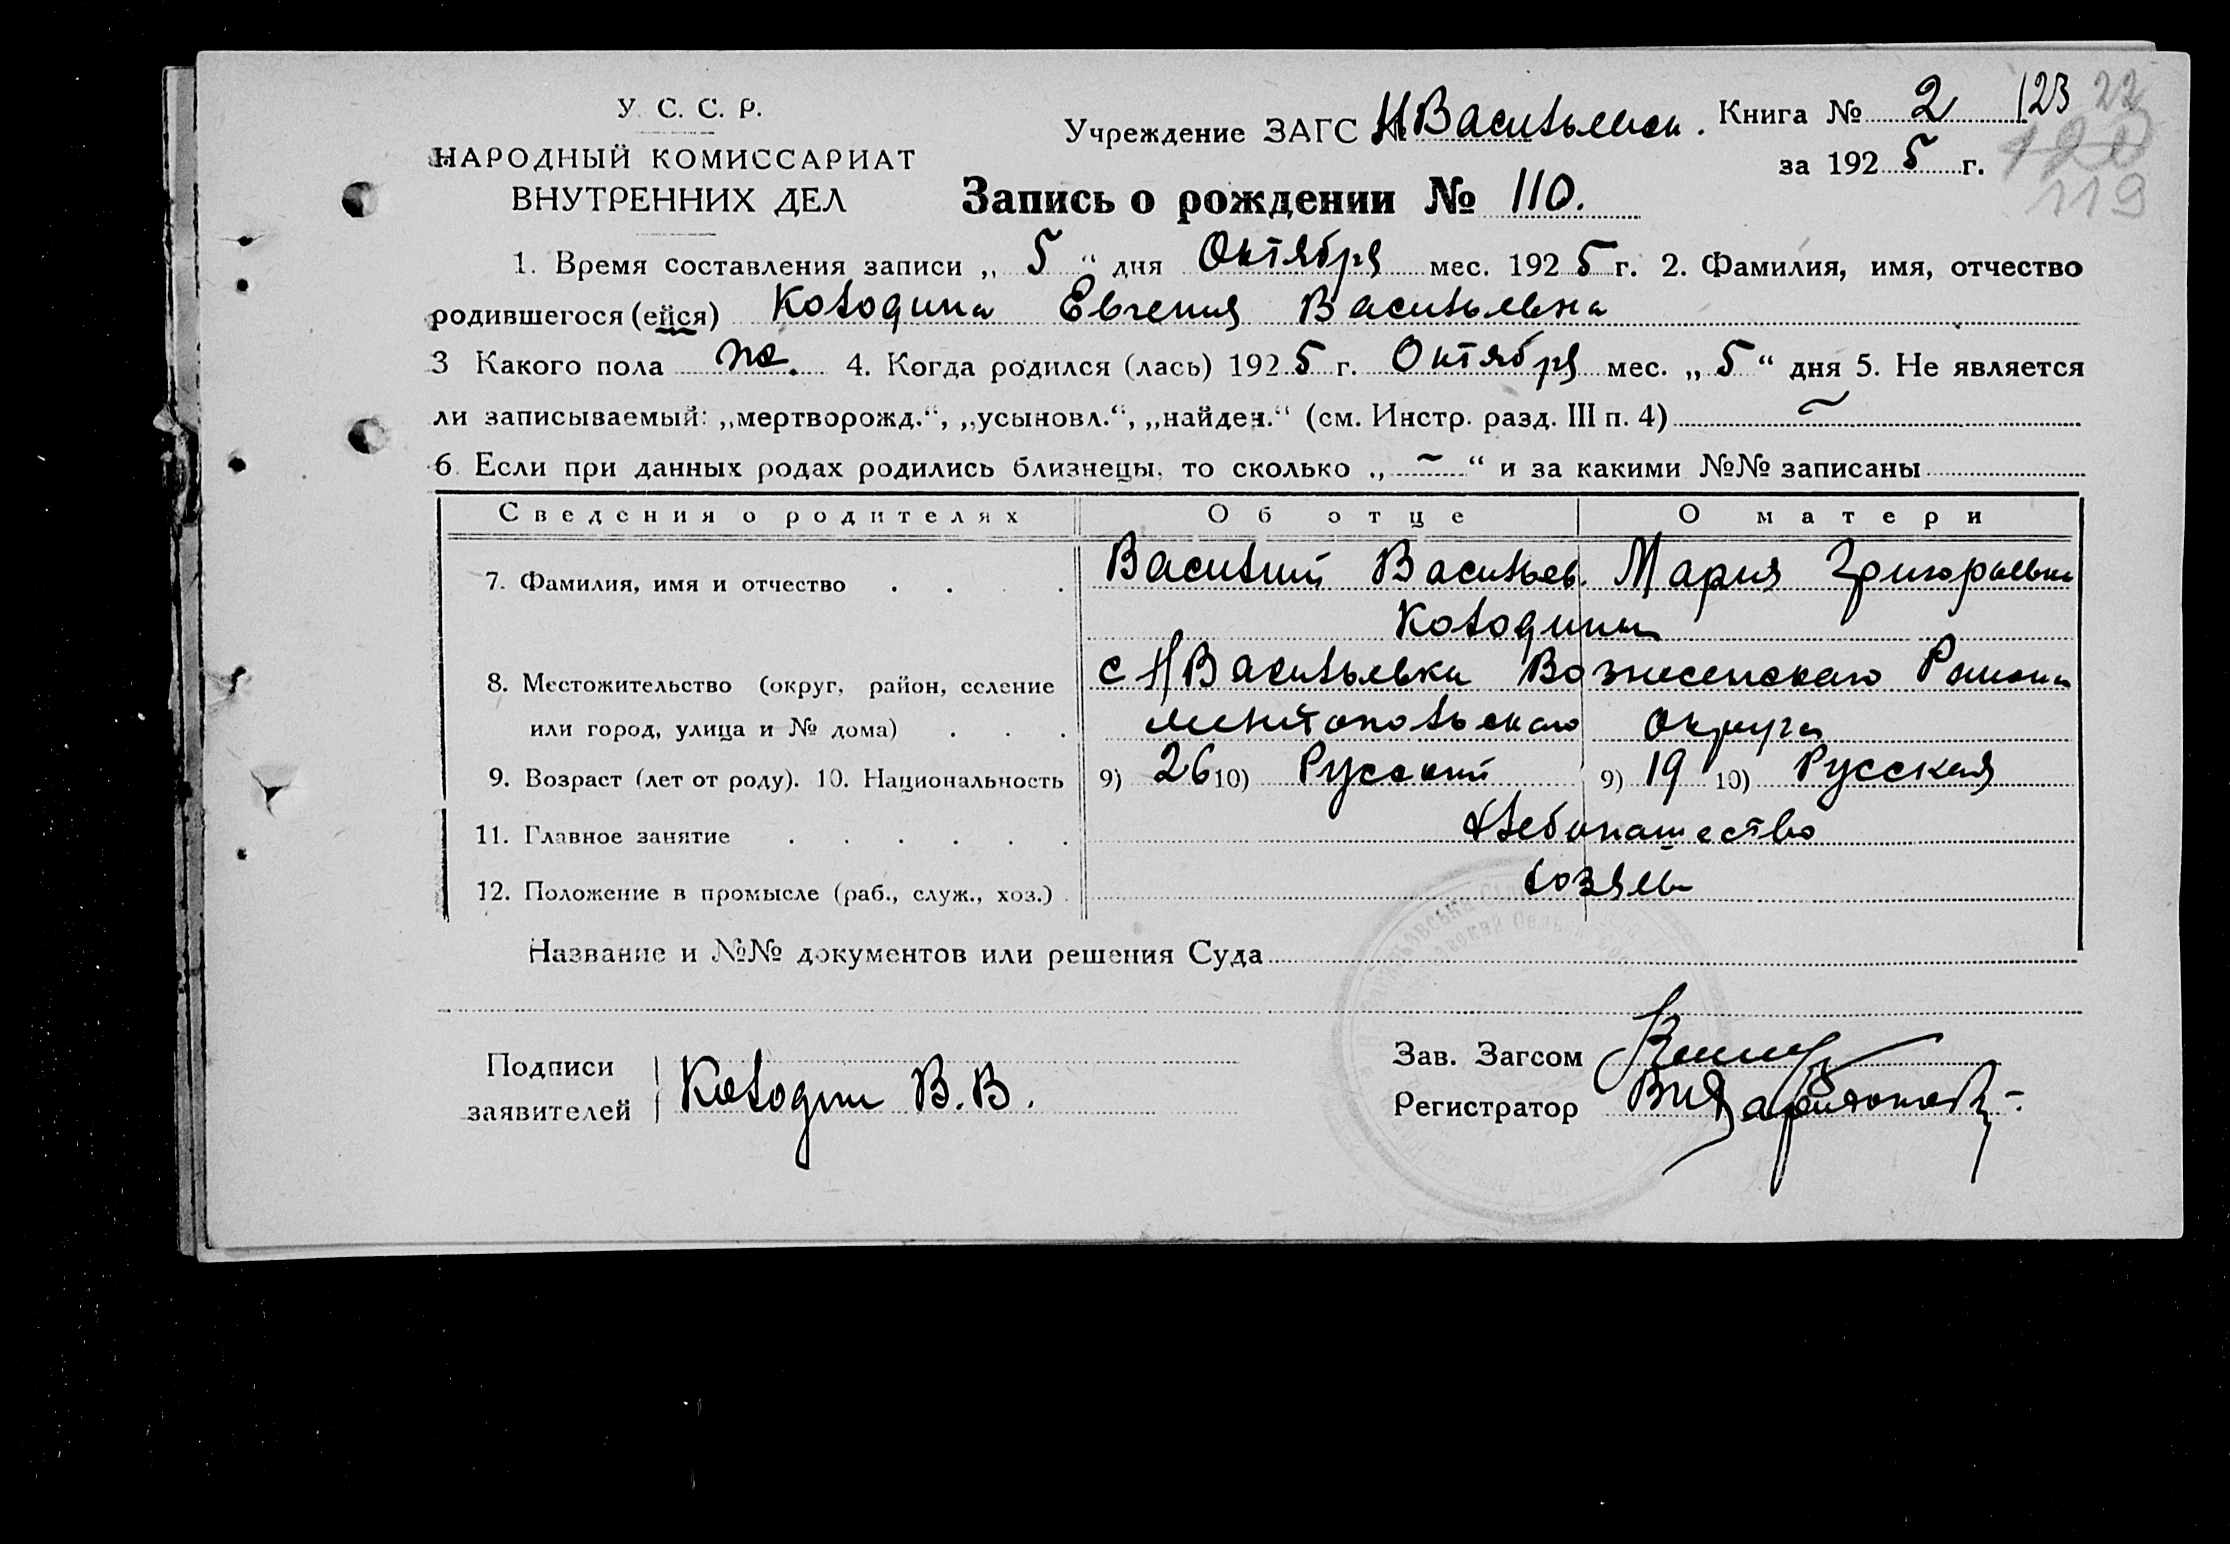 У. С. С. Р.
НАРОДНЫЙ КОМИССАРИАТ
ВНУТРЕННИХ ДЕЛ
Учреждение ЗАГС Н Васильевск.
Книга № 2 123 22
за 1925 г. 120
119
Запись о рождении № 110.
1. Время составления записи „ 5 “ дня Октября мес. 1925 г. 2. Фамилия, имя, отчество
родившегося (ейся) Колодина Евгения Васильевна
3 Какого пола ж. 4. Когда родился (лась) 1925 г. Октября мес. „ 5 “ дня 5. Не является
ли записываемый: „мертворожд.“, „усыновл.“, „найден.“ (см. Инстр. разд. III п. 4) ~
6 Если при данных родах родились близнецы, то сколько „ ~ “ и за какими №№ записаны
Сведения о родителях Об отце О матери
7. Фамилия, имя и отчество Василий Васильев. Мария Григорьевна
Колодины
8. Местожительство (округ, район, селение с Н Васильевки Вознесенского Района
или город, улица и № дома) Мелитопольского Округа
9. Возраст (лет от роду). 10. Национальность 9) 26 10) Русский 9) 19 10) Русская
11. Главное занятие Хлебопашество
12. Положение в промысле (раб., служ., хоз.) хозяева
Название и №№ документов или решения Суда
Подписи
заявителей Колодин В. В.
Зав. Загсом
Регистратор